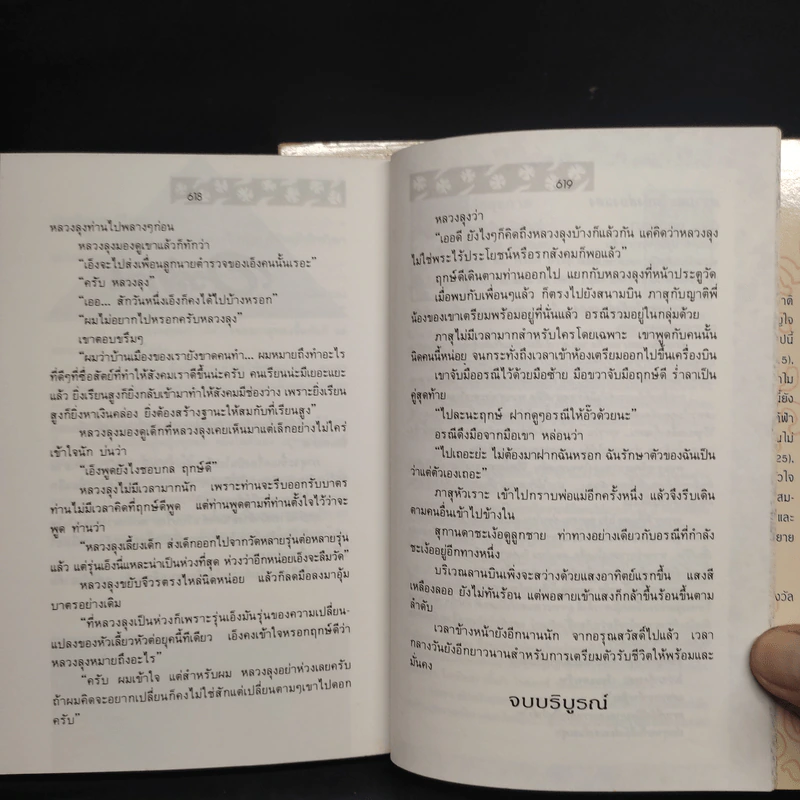 618
หลวงลุงท่านไปพลางๆก่อน
หลวงลุงมองดูเขาแล้วก็ทักว่า
“เอ็งจะไปส่งเพื่อนลูกนายตำรวจของเอ็งคนนั้นเรอะ”
“ครับ หลวงลุง”
“เออ... สักวันหนึ่งเอ็งก็คงได้ไปบ้างหรอก”
“ผมไม่อยากไปหรอกครับหลวงลุง”
เขาตอบขรึมๆ
“ผมว่าบ้านเมืองของเรายังขาดคนทำ... ผมหมายถึงทำอะไร
ที่ดีๆที่ซื่อสัตย์ที่ทำให้สังคมเราดีขึ้นน่ะครับ คนเรียนน่ะมีเยอะแยะ
แล้ว ยิ่งเรียนสูงก็ยิ่งกลับเข้ามาทำให้สังคมมีช่องว่าง เพราะยิ่งเรียน
สูงก็ยิ่งหาเงินคล่อง ยิ่งต้องสร้างฐานะให้สมกับที่เรียนสูง”
หลวงลุงมองดูเด็กที่หลวงลุงเคยเห็นมาแต่เล็กอย่างไม่ใคร่
เข้าใจนัก บ่นว่า
“เอ็งพูดยังไงชอบกล ฤกษ์ดี”
หลวงลุงไม่มีเวลามากนัก เพราะท่านจะรีบออกรับบาตร
ท่านไม่มีเวลาคิดที่ฤกษ์ดีพูด แต่ท่านพูดตามที่ท่านตั้งใจไว้ว่าจะ
พูด ท่านว่า
“หลวงลุงเลี้ยงเด็ก ส่งเด็กออกไปจากวัดหลายรุ่นต่อหลายรุ่น
แล้ว แต่รุ่นเอ็งนี่แหละน่าเป็นห่วงที่สุด ห่วงว่าอีกหน่อยเอ็งจะลืมวัด”
หลวงลุงขยับจีวรตรงไหล่นิดหน่อย แล้วก็ลดมือลงมาอุ้ม
บาตรอย่างเดิม
“ที่หลวงลุงเป็นห่วงก็เพราะรุ่นเอ็งมันรุ่นของความเปลี่ยน-
แปลงของหัวเลี้ยวหัวต่อยุคนี้ทีเดียว เอ็งคงเข้าใจหรอกฤกษ์ดีว่า
หลวงลุงหมายถึงอะไร”
“ครับ ผมเข้าใจ แต่สำหรับผม หลวงลุงอย่าห่วงเลยครับ
ถ้าผมคิดจะอยากเปลี่ยนก็คงไม่ใช่สักแต่เปลี่ยนตามๆเขาไปดอก
ครับ”
619
หลวงลุงว่า
“เออดี ยังไงๆก็คิดถึงหลวงลุงบ้างก็แล้วกัน แค่คิดว่าหลวงลุง
ไม่ใช่พระไร้ประโยชน์หรือรกสังคมก็พอแล้ว”
ฤกษ์ดีเดินตามท่านออกไป แยกกับหลวงลุงที่หน้าประตูวัด
เมื่อพบกับเพื่อนๆแล้ว ก็ตรงไปยังสนามบิน ภาสุกับญาติพี่
น้องของเขาเตรียมพร้อมอยู่ที่นั่นแล้ว อรณีรวมอยู่ในกลุ่มด้วย
ภาสุไม่มีเวลามากสำหรับใครโดยเฉพาะ เขาพูดกับคนนั้น
นิดคนนี้หน่อย จนกระทั่งถึงเวลาเข้าห้องเตรียมรวมไปขึ้นเครื่องบิน
เขาจับมืออรณีไว้ด้วยมือซ้าย มือขวาจับมือฤกษ์ดี ร่ำลาเป็น
คู่สุดท้าย
“ไปละนะฤกษ์ ฝากดูๆอรณีให้อั๊วด้วยนะ”
อรณีดึงมือจากมือเขา หล่อนว่า
“ไปเถอะย่ะ ไม่ต้องมาฝากฉันหรอก ฉันรักษาตัวของฉันเป็น
ว่าแต่ตัวเองเถอะ”
ภาสุหัวเราะ เข้าไปกราบพ่อแม่อีกครั้งหนึ่ง แล้วจึงรีบเดิน
ตามคนอื่นเข้าไปข้างใน
สุกานดาชะเง้อดูลูกชาย ท่าทางอย่างเดียวกับอรณีที่กำลัง
ชะเง้ออยู่อีกทางหนึ่ง
บริเวณลานบินเพิ่งจะสว่างด้วยแสงอาทิตย์แรกขึ้น แสงสี
เหลืองลออ ยังไม่ทันร้อน แต่พอสายเข้าแสงก็กล้าขึ้นร้อนขึ้นตาม
ลำดับ
เวลาข้างหน้ายังอีกนานนัก จากอรุณสวัสดิ์ไปแล้ว เวลา
กลางวันยังอีกยาวนานสำหรับการเตรียมตัวรับชีวิตให้พร้อมและ
มั่นคง
จบบริบูรณ์